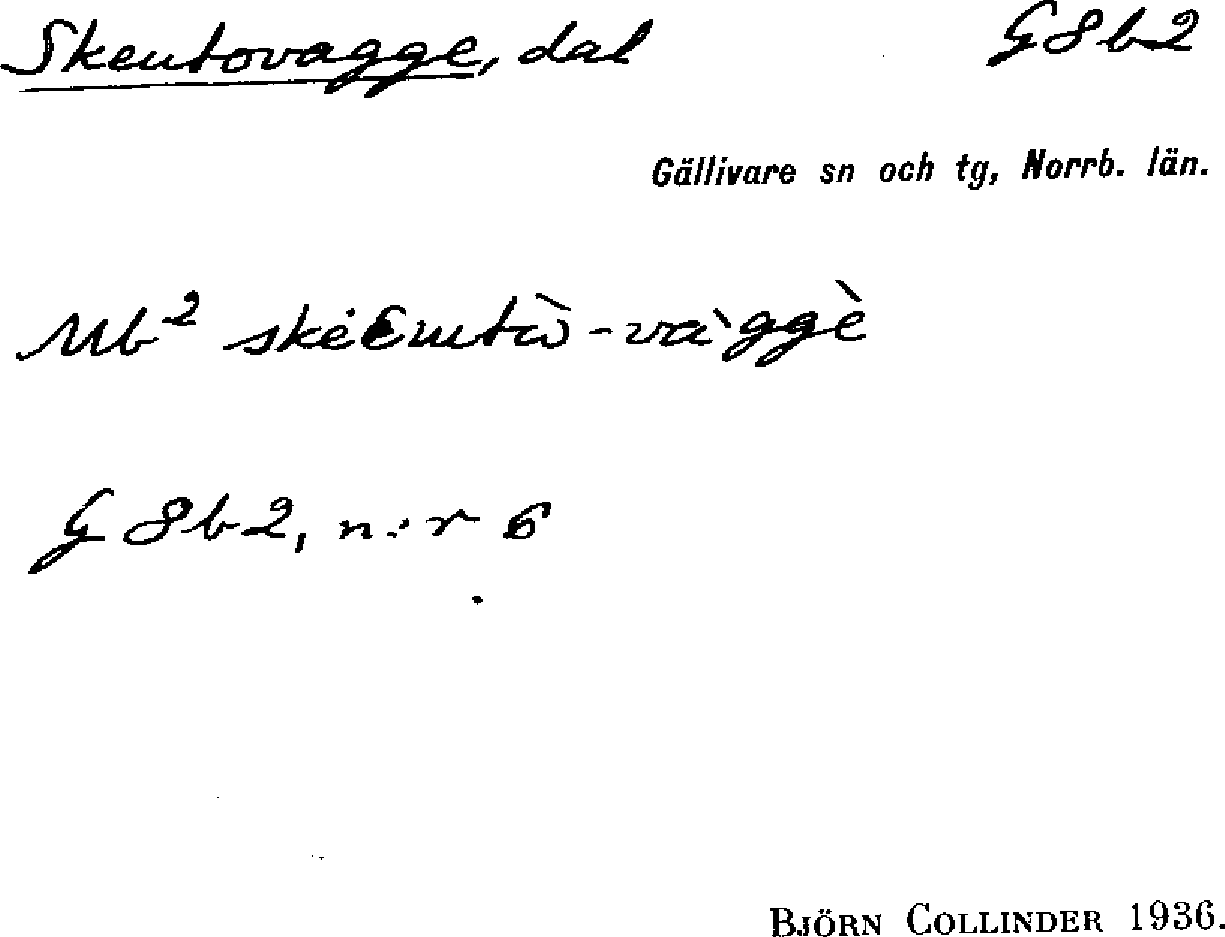 Skeutovagge, dal G8b2
Gällivare sn och tg, Norrb. län.
Mb² -vaˋggè
G 8b2, n:r 6
BJÖRN COLLINDER 1936.